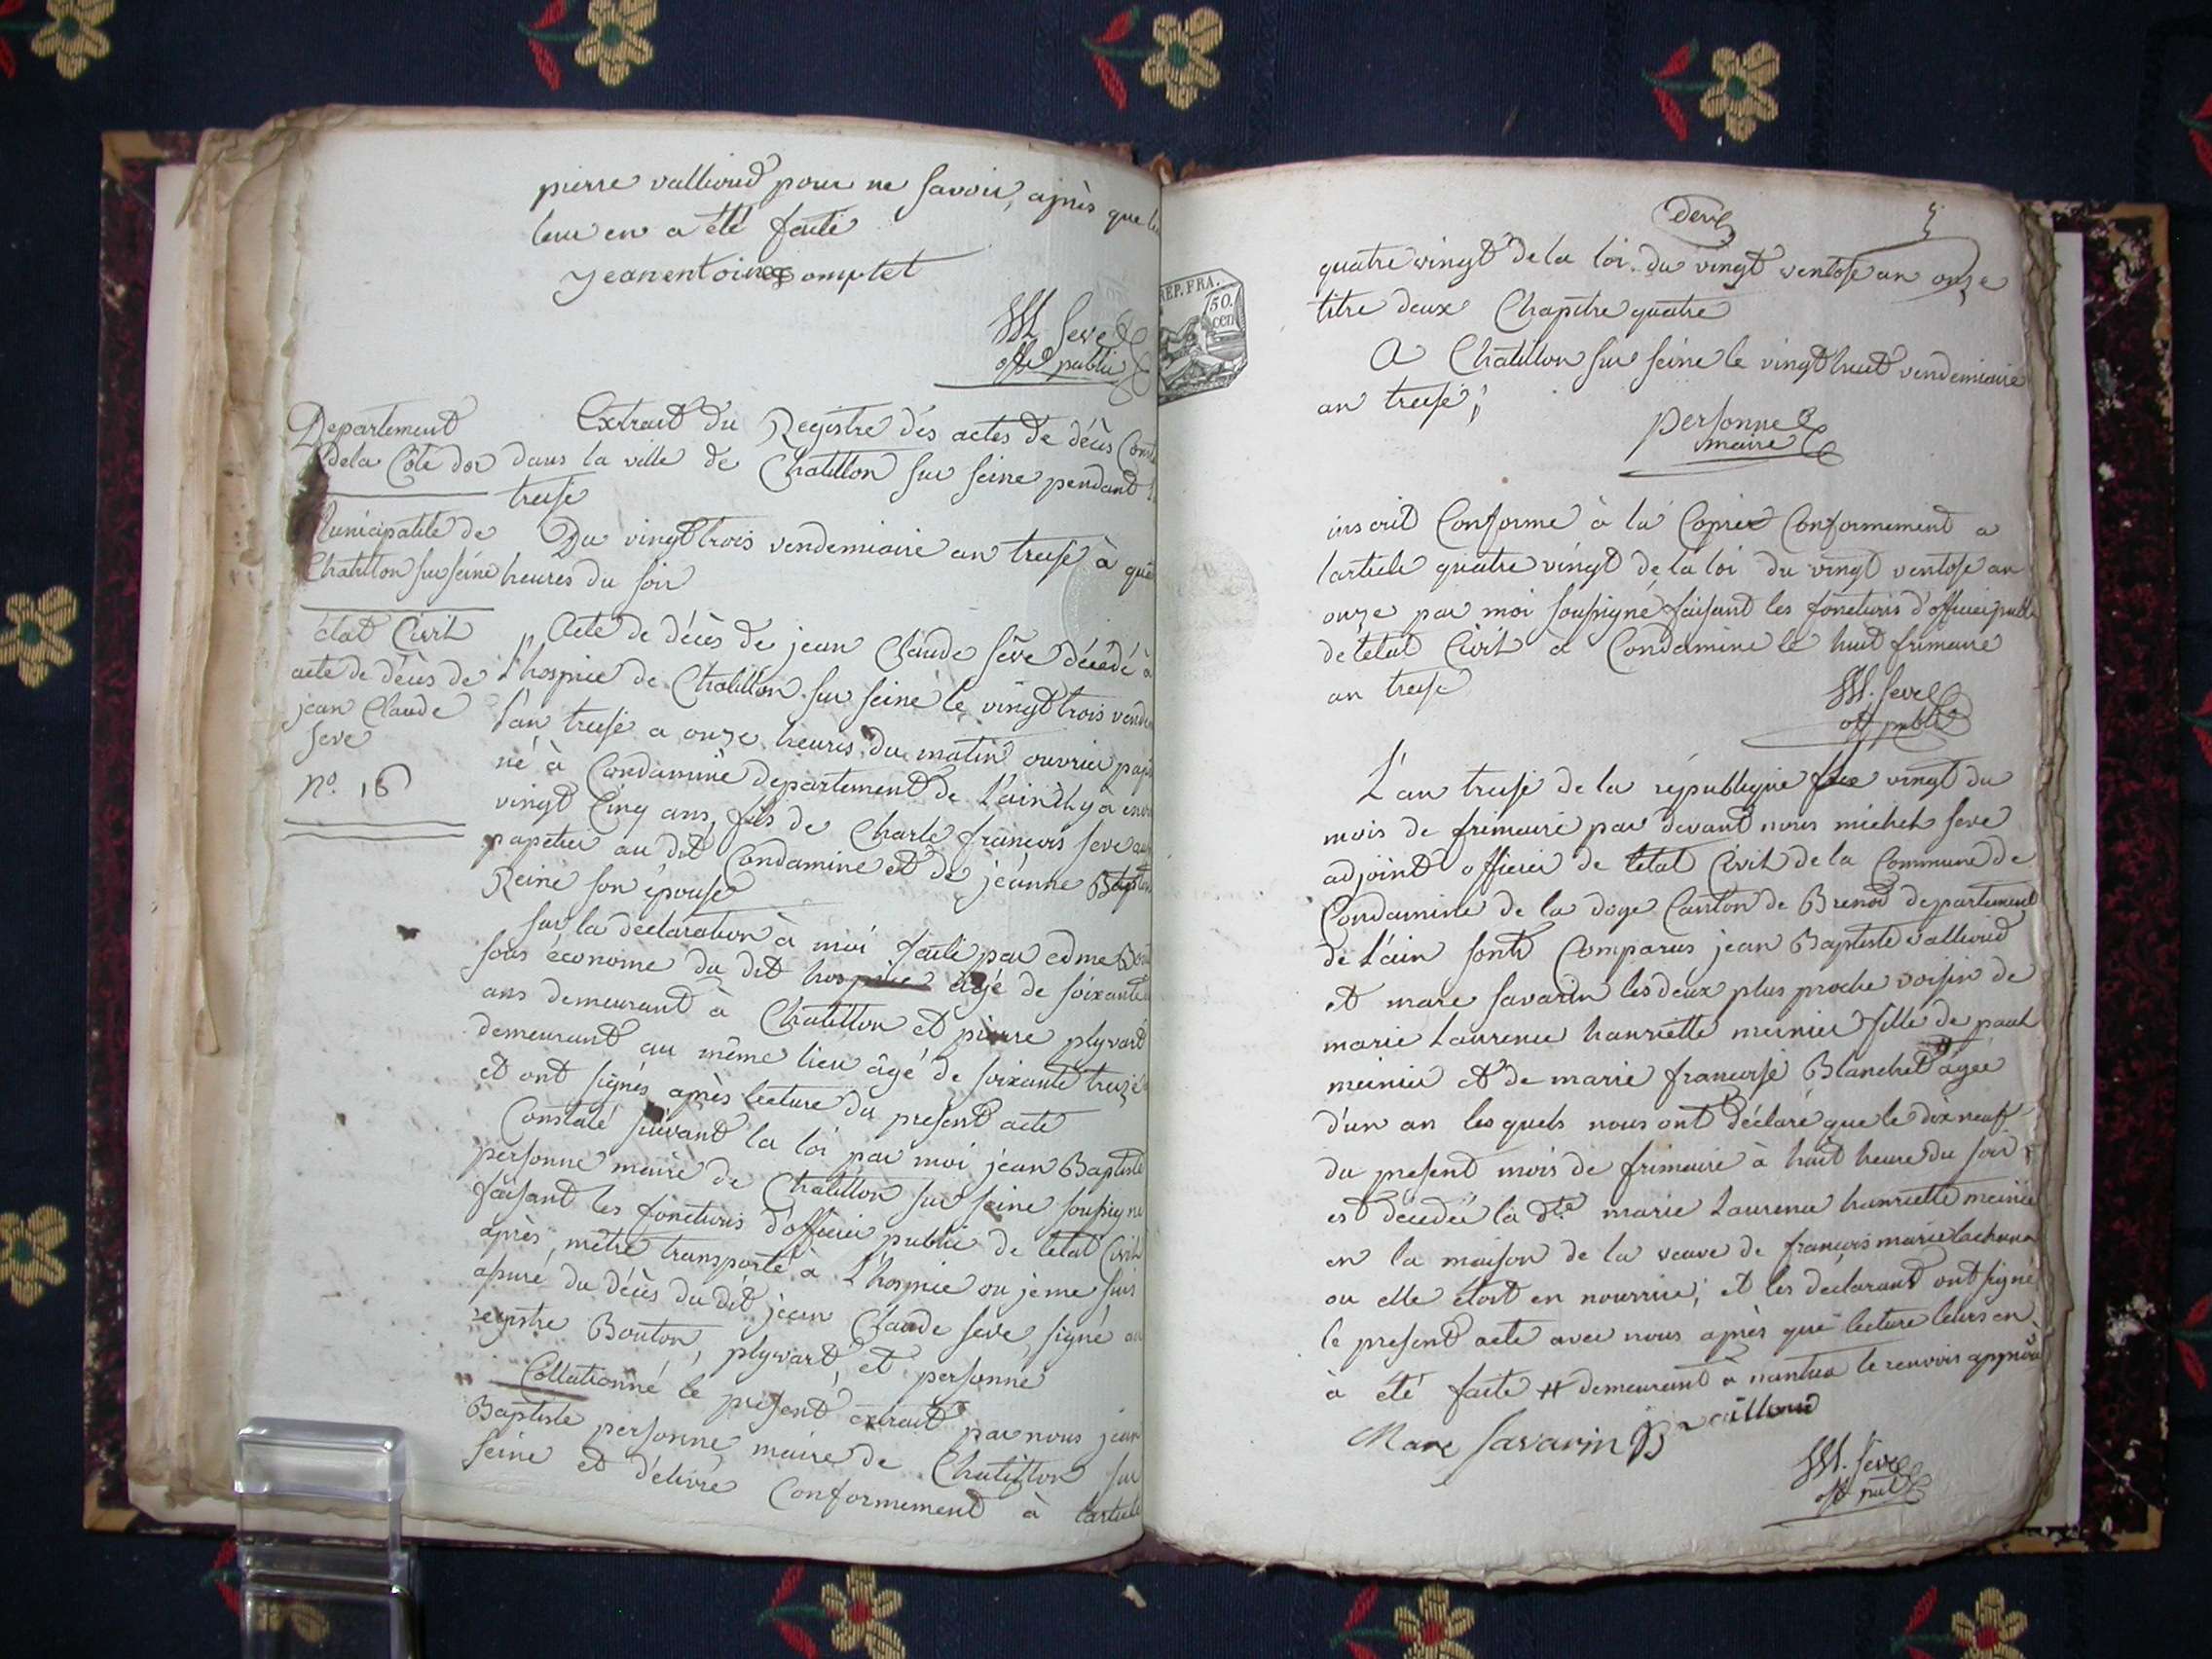 pierre valliend pour ne savoir, après que
leur en a été faite
jeanentoine complet
M Seve
off public
Departement
de la Côte dor
Municipalité de
Chatillon sur seine
état Civil
acte de décès de
jean Claude
Seve
no. 16
Extrait du Registre des actes de décès
dans la ville de Chatillon sur seine pendant
treise
Du vingt trois vendemiaire an treise à
heures du soir
Acte de décès de jean Claude Sève décédé à
L'hospice de Chatillon sur seine le vingt trois
l'an treise a onze heures du matin ouvrier
né à Condamine departement de L'ain il y a
vingt Cinq ans, fils de Charle françois seve
papetier au dit Condamine et de jeanne
Reine son épouse
Sur la déclaration à moi faite par edme
sous économe du dit hospice âgé de soixante
ans demeurant à Chatillon et pierre plyvart
demeurant au même lieu âgé de soixante treize
et ont signés après lecture du present acte
Constaté suivant la loi par moi jean Baptiste
personne maire de Chatillon sur seine soussigné
faisant les fonctions d'officier public de letat Civil
après, metre transporté à L'hospice ou je me suis
assuré du décès du dit jean Claude Seve, signé au
registre Bouton, plyvart, et personne
Collationné le présent extrait par nous jean
Baptiste personne, maire de Chatillon sur
seine et délivré Conformement à l'article
REP. FRA.
50.
cen
5
quatre vingt de la loi du vingt ventose an onze
titre deux Chapitre quatre
A Chatillon sur seine le vingt huit vendemiaire
an treise;
personne
maire
inscrit Conforme à la Copie Conformement a
larticle quatre vingt de la loi du vingt ventose an
onze par moi soussigné faisant les fonctions d'officier public
de letat Civil à Condamine le huit frimaire
an treise
M. Seve
off public
L'an treise de la république vingt du
mois de frimaire par devant nous michel seve
adjoint officier de letat Civil de la Commune de
Condamine de la doye Canton de Brenod departement
de L'ain sont Comparus jean Baptiste valliend
et marc savarin les deux plus proche voisin de
marie Laurence hanriette meinier fille de paul
meinier et de marie françoise Blanchet # âgée
d'un an lesquels nous ont déclaré que le dix neuf
du present mois de frimaire à huit heure du soir
est décedée la dte marie Laurence hanriette meinier
en la maison de la veuve de françois marie
ou elle étoit en nourrice; et les declarant ont signé
le present acte avec nous après que lecture leurs en
à été faite # demeurant à nantua le renvois approuvé
Marc Savarin
M. Seve
off pub